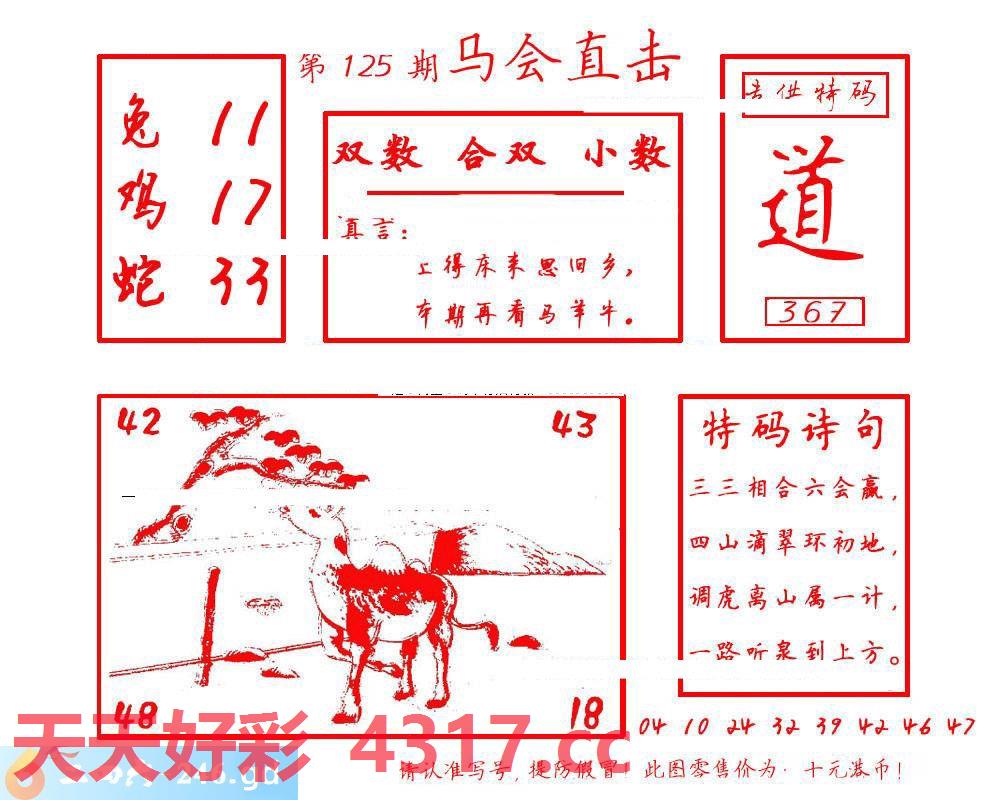 第 125 期 马会直击
兔 11
鸡 17
蛇 33
双数 合双 小数
真言：
上得床来思旧乡，
本期再看马羊牛。
特码
道
367
42
43
48
18
特码诗句
三三相合六会赢，
四山滴翠环初地，
调虎离山属一计，
一路听泉到上方。
04 10 24 32 39 42 46 47
天天好彩 4317.cc
246.gd
请认准写号，提防假冒！此图零售价为·十元港币！